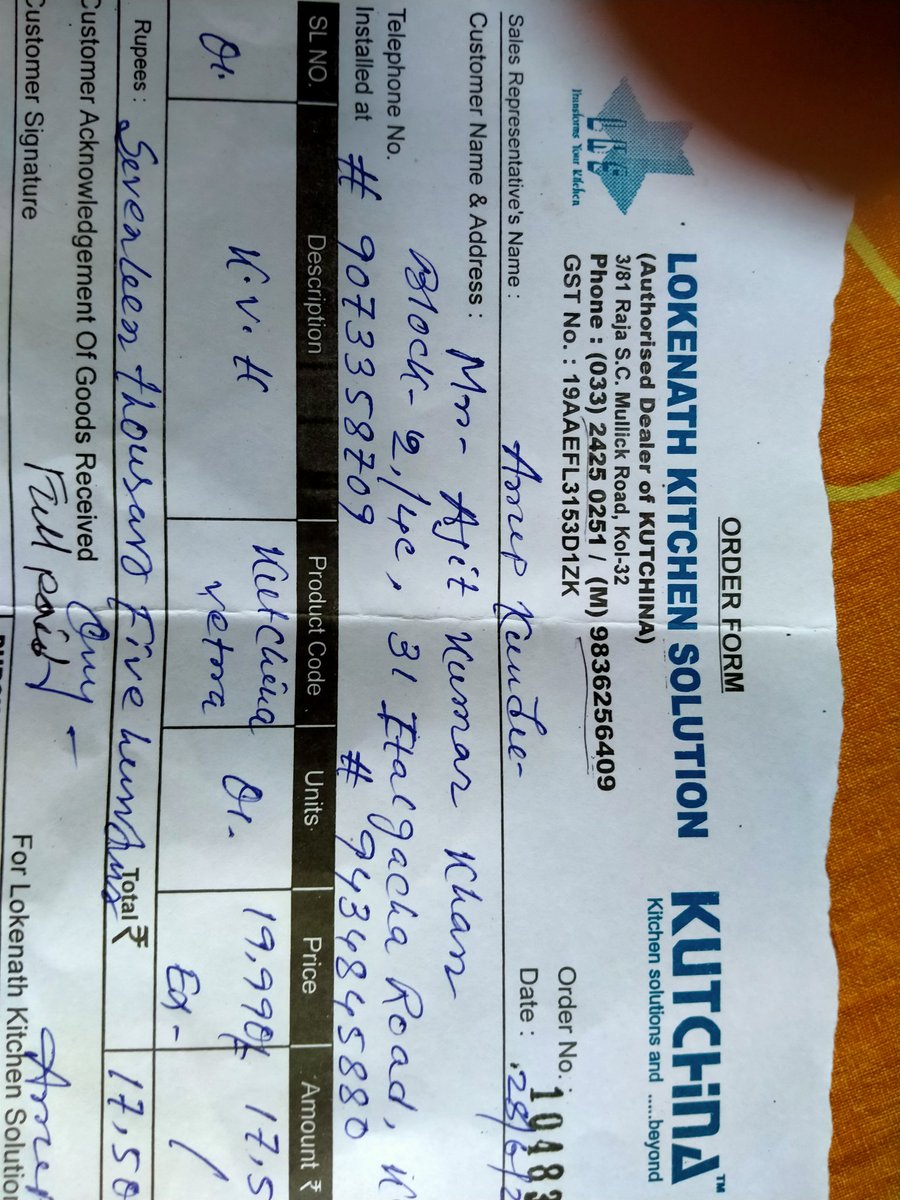 ORDER FORM
LOKENATH KITCHEN SOLUTION
KUTCHINA™
Kitchen solutions and ......beyond
(Authorised Dealer of KUTCHINA)
3/81 Raja S.C. Mullick Road, Kol-32
Phone : (033) 2425 0251 / (M) 9836256409
GST No. : 19AAEFL3153D1ZK
Transforms Your Kitchen
Order No. : 10483
Date : 28/6/2
Sales Representative's Name :
Customer Name & Address : Mr. Ajit Kumar Khan
Block-2, 31 Italgacha Road,
Telephone No.
Installed at # 9073358709 # 9434845880
SL NO. Description Product Code Units Price Amount ₹
01. K.V.H Kutchina 01. 19,990/- 17,5
Rupees : Seventeen thousand Five hundred Total ₹ 17,50
Customer Acknowledgement Of Goods Received
Full paid
Customer Signature
For Lokenath Kitchen Solution